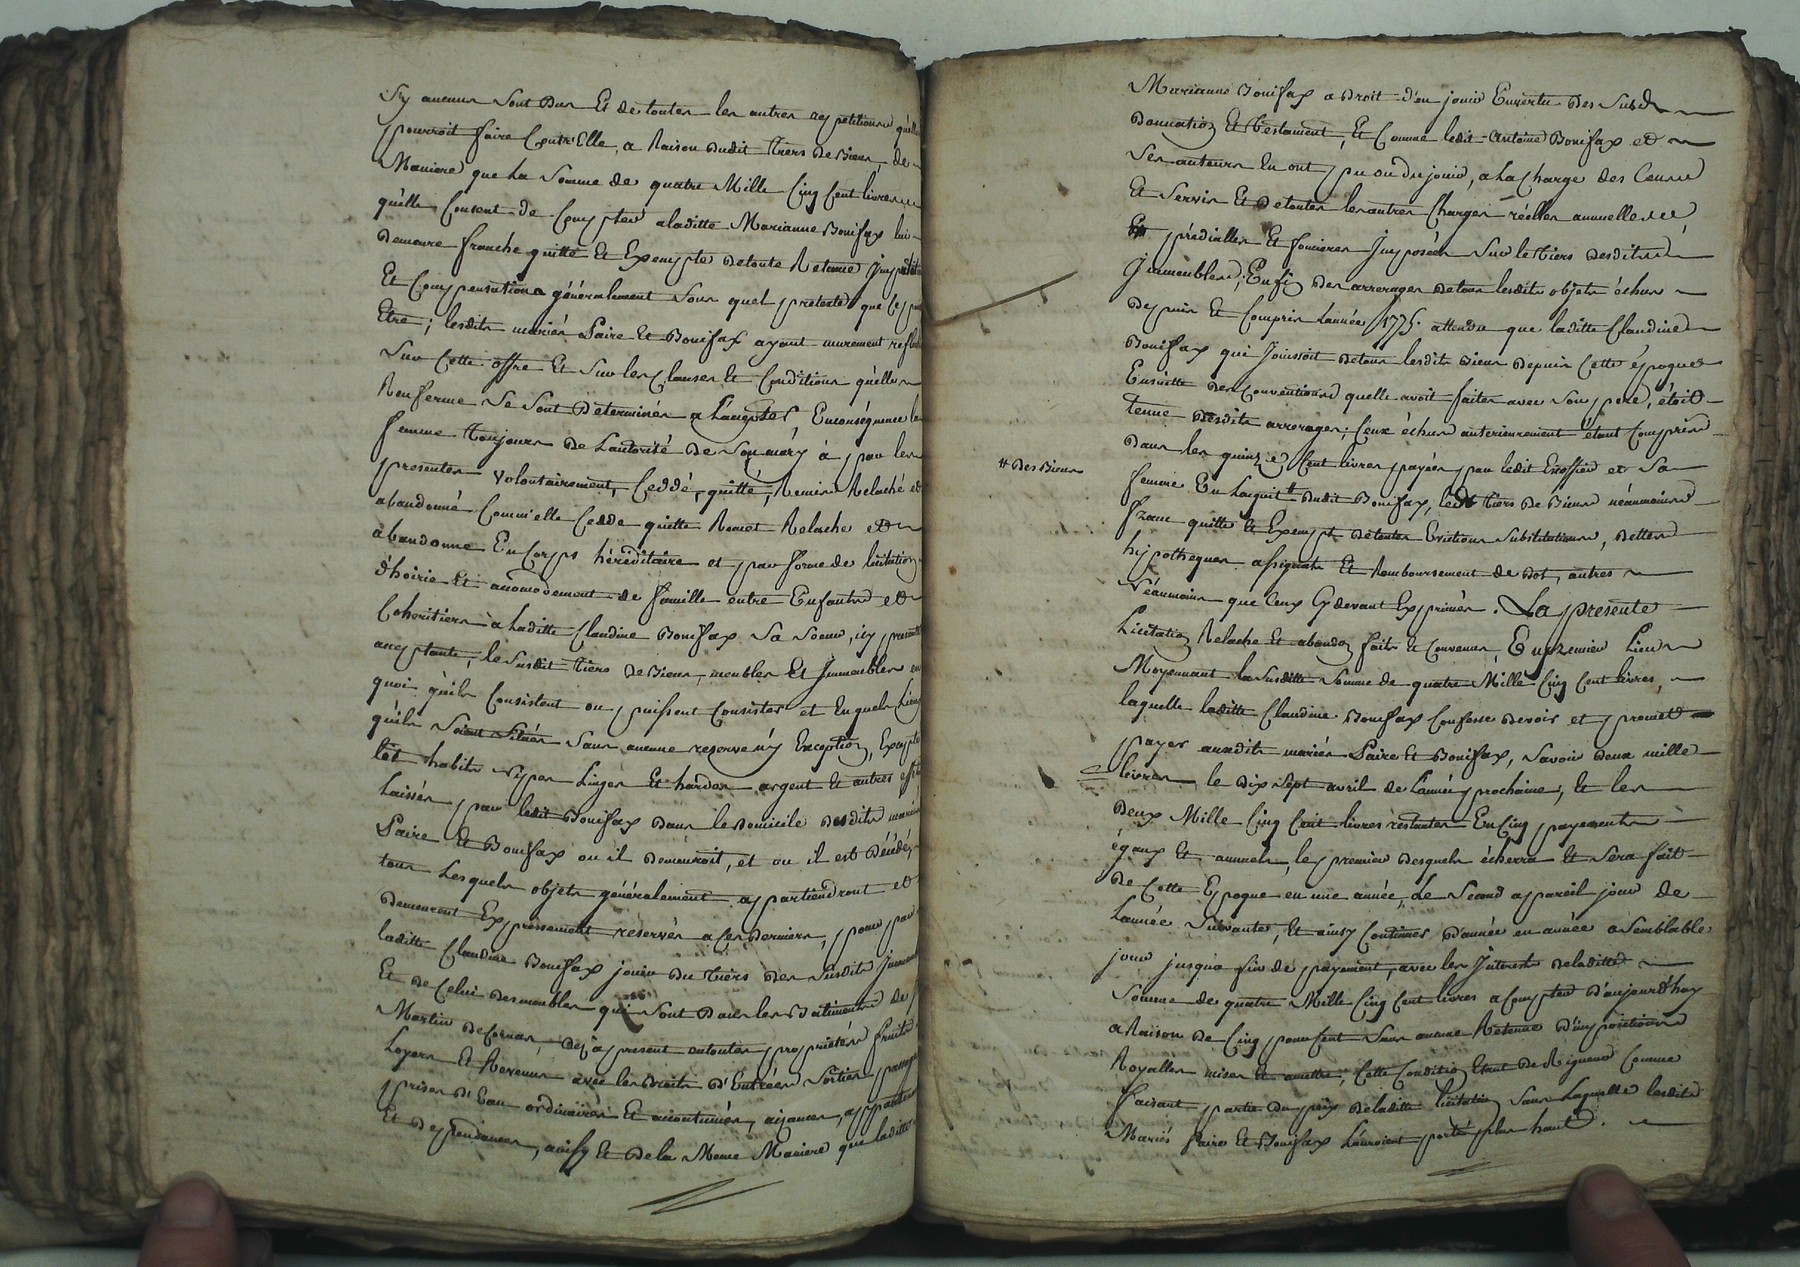 Sy aucuns sont dus Et de toutes les autres repetitions qu'elle
pourroit faire Contr'Elle, a Raison dudit tiers de Biens, de
Maniere que La Somme de quatre Mille Cinq Cent livres
qu'elle Consent de Compter a laditte Marianne Bonifax lui
demeure franche quitte Et Exempte de toute Retenue Imputation
Et Compensation généralement sous quel pretexte que Ce puisse
Etre ; lesdits mariés Paire Et Bonifax ayant murement reflechi
Sur Cette offre Et Sur les Clauses Et Conditions qu'elle
Renferme Se Sont determinés a L'accepter, Enconséquence la
femme toujours de Lautorité de Son mary à par les
presentes volontairement, Ceddé, quitté, Remis Relaché et
abandonné Comm'elle Cedde quitte Remet Relache et
abandonne En Corps héréditaire et par forme de licitation
d'hoirie Et accomodement de famille entre Enfants et
Cohéritiers à Laditte Claudine Bonifax Sa Soeur, icy presente
acceptante, le Susdit tiers de Biens, meubles Et Immeubles en
quoi qu'ils Consistent ou puissent Consister et En quels Lieux
qu'ils Soient Situés Sans aucune reserve n'y Exception, Excepté
les habits nippes Linges Et hardes argent Et autres effets
Laissés par ledit Bonifax dans le Domicile desdits mariés
Paire Et Bonifax ou il demeuroit, et ou il est décédé,
tous Lesquels objets généralement appartiendront et
demeurent Expressement reservés a Ces derniers, pour par
laditte Claudine Bonifax jouir du tiers des Susdits Immeubles
Et de Celui des meubles qui Sont dans les Batiments de
Martin de Cornas, dès a present en toutes proprietés fruits
Loyers Et Revenus avec les droits d'Entrées Sorties passages
prises d'Eau ordinaires Et accoutumés, aizances, appartenances
Et dependances, ainsy Et de la Meme Maniere que laditte
Marianne Bonifax a Droit d'en jouir En vertu des Susd.
Donnation Et testament, Et Comme ledit Antoine Bonifax et
Ses auteurs En ont pu ou du jouir, a La Charge des Cens
Et Servis Et de toutes les autres Charges réelles annuelles
prédialles Et foncieres Imposées Sur le tiers desdits
Immeubles, Enfin des arrerages de tous lesdits objets échus
depuis Et Compris L'année 1775. attendu que laditte Claudine
Bonifax qui Jouissoit de tous lesdits Biens depuis Cette époque
Ensuitte des Conventions quelle avoit faites avec Son pere, étoit
tenue desdits arrerages ; Ceux échus anterieurement étant Compris
dans les quinze Cent livres payées par ledit et Sa
# des Biens
femme En Lacquit # dudit Bonifax, ledt tiers de Biens néanmoins
franc quitte Et Exempt de toutes Evictions Substitutions, dettes
hipotheques assignats Et Remboursement de dot, autres
Néanmoins que Ceux Cy devant Exprimés. La presente
Licitation Relache Et abandon faits Et Convenus, En premier Lieu
Moyennant la Susditte Somme de quatre Mille Cinq Cent livres,
laquelle laditte Claudine Bonifax Confesse devoir et promet
payer auxdits mariés Paire Et Bonifax, Savoir deux mille
livres le dix Sept avril de L'année prochaine, Et les
Deux Mille Cinq Cent livres restantes En Cinq payements
égaux Et annuels, le premier desquels écherra Et Sera fait
de Cette Epoque en une année, Le Second a pareil jour de
L'année Suivante, Et ainsy Continués d'année en année a Semblable
jour jusqu'a fin de payement, avec les Interets de laditte
Somme de quatre Mille Cinq Cent livres a Compter d'aujourd'huy
a Raison de Cinq pour Cent Sans aucune Retenue d'impositions
Royalles mises Et a mettre, Cette Condition Etant de Rigueur Comme
faisant partie du prix de laditte licitation Sans Laquelle lesdits
Mariés Paire Et Bonifax L'auroient porté plus haut.